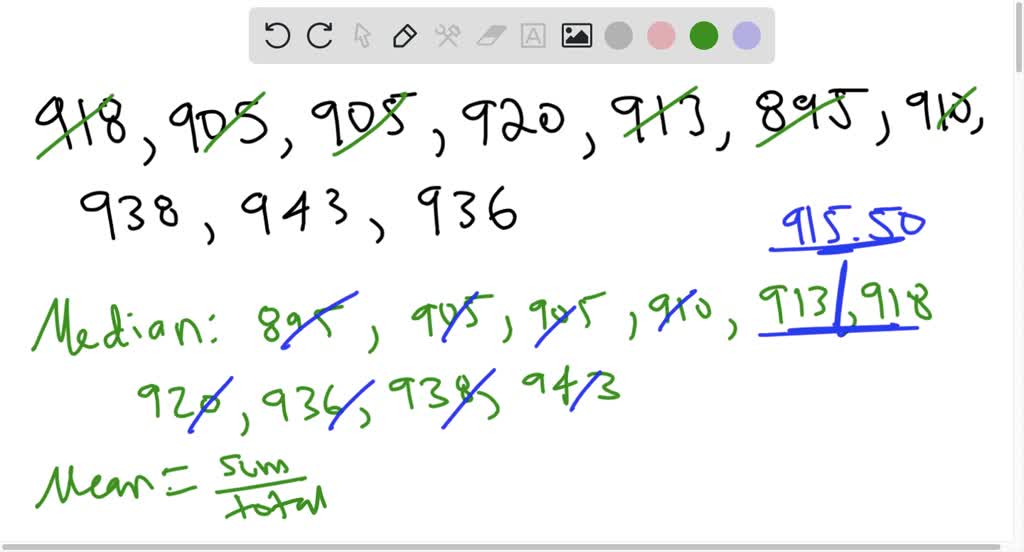 918, 905, 905, 920, 913, 895, 910,
938, 943, 936
915.50
Median: 895, 905, 905, 910, 913, 918
920, 936, 938, 943
Mean = sum
total